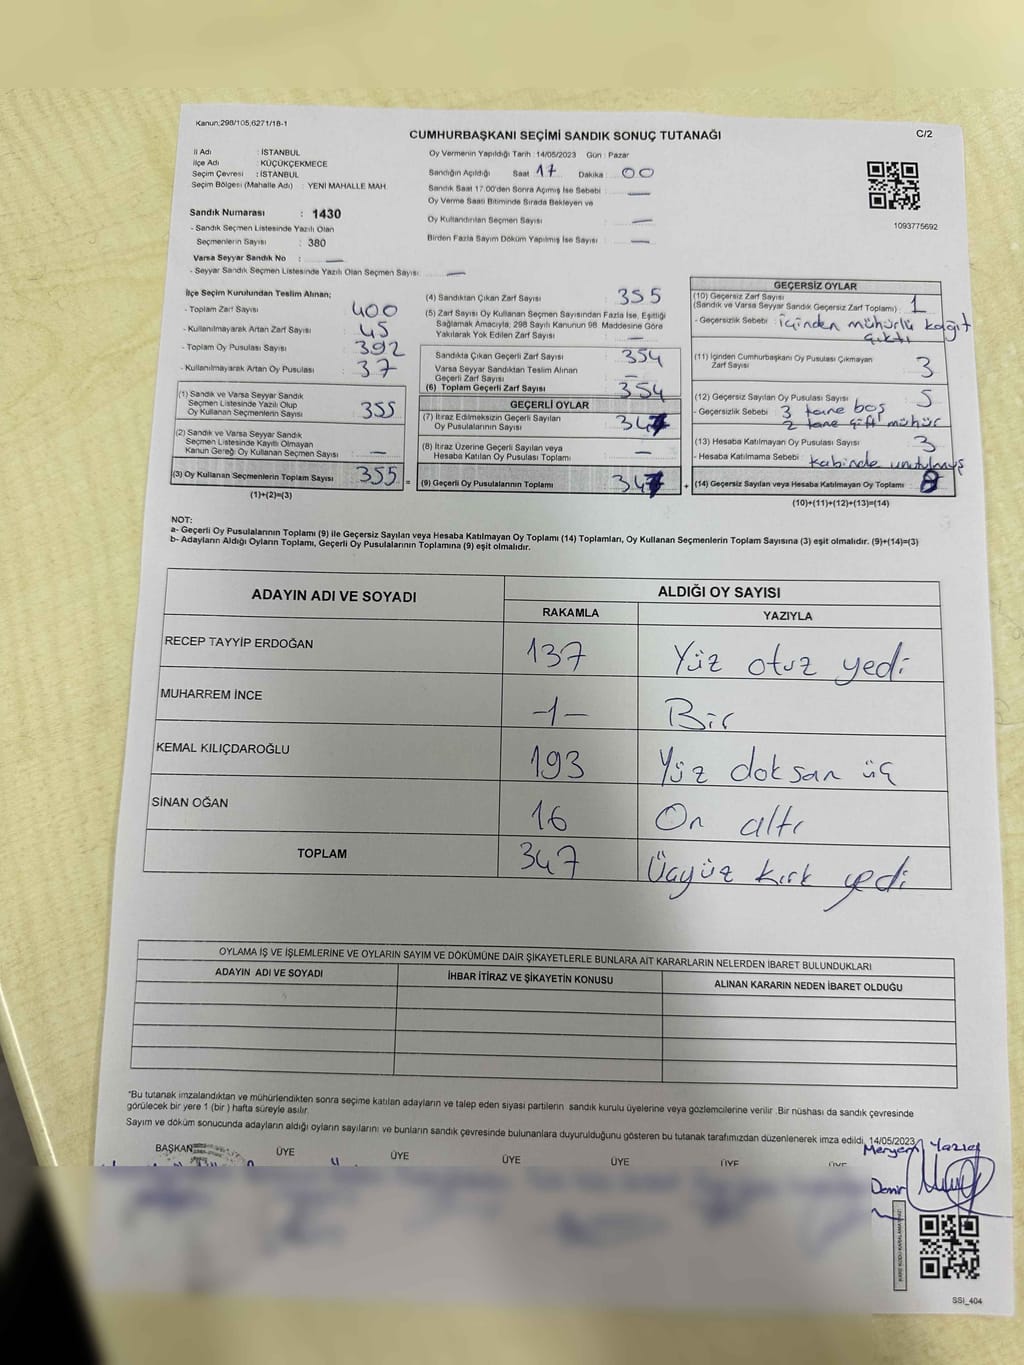 Kanun,298/105,6271/18-1
CUMHURBAŞKANI SEÇİMİ SANDIK SONUÇ TUTANAĞI
C/2
İl Adı : İSTANBUL
İlçe Adı : KÜÇÜKÇEKMECE
Seçim Çevresi : İSTANBUL
Seçim Bölgesi (Mahalle Adı) : YENİ MAHALLE MAH.
Sandık Numarası : 1430
- Sandık Seçmen Listesinde Yazılı Olan
Seçmenlerin Sayısı : 380
Varsa Seyyar Sandık No : —
- Seyyar Sandık Seçmen Listesinde Yazılı Olan Seçmen Sayısı : —
Oy Vermenin Yapıldığı Tarih : 14/05/2023 Gün : Pazar
Sandığın Açıldığı Saat 17 Dakika : 00
Sandık Saat 17:00'den Sonra Açımış İse Sebebi : —
Oy Verme Saati Bitiminde Sırada Bekleyen ve
Oy Kullandırılan Seçmen Sayısı : —
Birden Fazla Sayım Döküm Yapılmış İse Sayısı : —
1093775692
İlçe Seçim Kurulundan Teslim Alınan;
- Toplam Zarf Sayısı : 400
- Kullanılmayarak Artan Zarf Sayısı : 45
- Toplam Oy Pusulası Sayısı : 392
- Kullanılmayarak Artan Oy Pusulası : 37
(1) Sandık ve Varsa Seyyar Sandık
Seçmen Listesinde Yazılı Olup
Oy Kullanan Seçmenlerin Sayısı : 355
(2) Sandık ve Varsa Seyyar Sandık
Seçmen Listesinde Kayıtlı Olmayan
Kanun Gereği Oy Kullanan Seçmen Sayısı : —
(3) Oy Kullanan Seçmenlerin Toplam Sayısı : 355 =
(1)+(2)=(3)
(4) Sandıktan Çıkan Zarf Sayısı : 355
(5) Zarf Sayısı Oy Kullanan Seçmen Sayısından Fazla İse, Eşitliği
Sağlamak Amacıyla, 298 Sayılı Kanunun 98. Maddesine Göre
Yakılarak Yok Edilen Zarf Sayısı : —
Sandıkta Çıkan Geçerli Zarf Sayısı : 354
Varsa Seyyar Sandıktan Teslim Alınan
Geçerli Zarf Sayısı : —
(6) Toplam Geçerli Zarf Sayısı : 354
GEÇERLİ OYLAR
(7) İtiraz Edilmeksizin Geçerli Sayılan
Oy Pusulalarının Sayısı : 347
(8) İtiraz Üzerine Geçerli Sayılan veya
Hesaba Katılan Oy Pusulası Toplamı : —
(9) Geçerli Oy Pusulalarının Toplamı : 347 +
GEÇERSİZ OYLAR
(10) Geçersiz Zarf Sayısı
(Sandık ve Varsa Seyyar Sandık Geçersiz Zarf Toplamı) : 1
- Geçersizlik Sebebi : içinden mühürlü kağıt
çıktı
(11) İçinden Cumhurbaşkanı Oy Pusulası Çıkmayan
Zarf Sayısı : 3
(12) Geçersiz Sayılan Oy Pusulası Sayısı : 5
- Geçersizlik Sebebi : 3 tane boş
2 tane çift mühür
(13) Hesaba Katılmayan Oy Pusulası Sayısı : 3
- Hesaba Katılmama Sebebi : kabinde unutulmuş
(14) Geçersiz Sayılan veya Hesaba Katılmayan Oy Toplamı : 8
(10)+(11)+(12)+(13)=(14)
NOT:
a- Geçerli Oy Pusulalarının Toplamı (9) ile Geçersiz Sayılan veya Hesaba Katılmayan Oy Toplamı (14) Toplamları, Oy Kullanan Seçmenlerin Toplam Sayısına (3) eşit olmalıdır. (9)+(14)=(3)
b- Adayların Aldığı Oyların Toplamı, Geçerli Oy Pusulalarının Toplamına (9) eşit olmalıdır.
ADAYIN ADI VE SOYADI
ALDIĞI OY SAYISI
RAKAMLA YAZIYLA
RECEP TAYYİP ERDOĞAN 137 Yüz otuz yedi
MUHARREM İNCE -1- Bir
KEMAL KILIÇDAROĞLU 193 Yüz doksan üç
SİNAN OĞAN 16 On altı
TOPLAM 347 Üçyüz kırk yedi
OYLAMA İŞ VE İŞLEMLERİNE VE OYLARIN SAYIM VE DÖKÜMÜNE DAİR ŞİKAYETLERLE BUNLARA AİT KARARLARIN NELERDEN İBARET BULUNDUKLARI
ADAYIN ADI VE SOYADI İHBAR İTİRAZ VE ŞİKAYETİN KONUSU ALINAN KARARIN NEDEN İBARET OLDUĞU
"Bu tutanak imzalandıktan ve mühürlendikten sonra seçime katılan adayların ve talep eden siyasi partilerin sandık kurulu üyelerine veya gözlemcilerine verilir .Bir nüshası da sandık çevresinde
görülecek bir yere 1 (bir ) hafta süreyle asılır.
Sayım ve döküm sonucunda adayların aldığı oyların sayılarını ve bunların sandık çevresinde bulunanlara duyurulduğunu gösteren bu tutanak tarafımızdan düzenlenerek imza edildi. 14/05/2023
BAŞKAN ÜYE ÜYE ÜYE ÜYE ÜYE ÜYE
Meryem Yazıcı
Demir
SSI_404